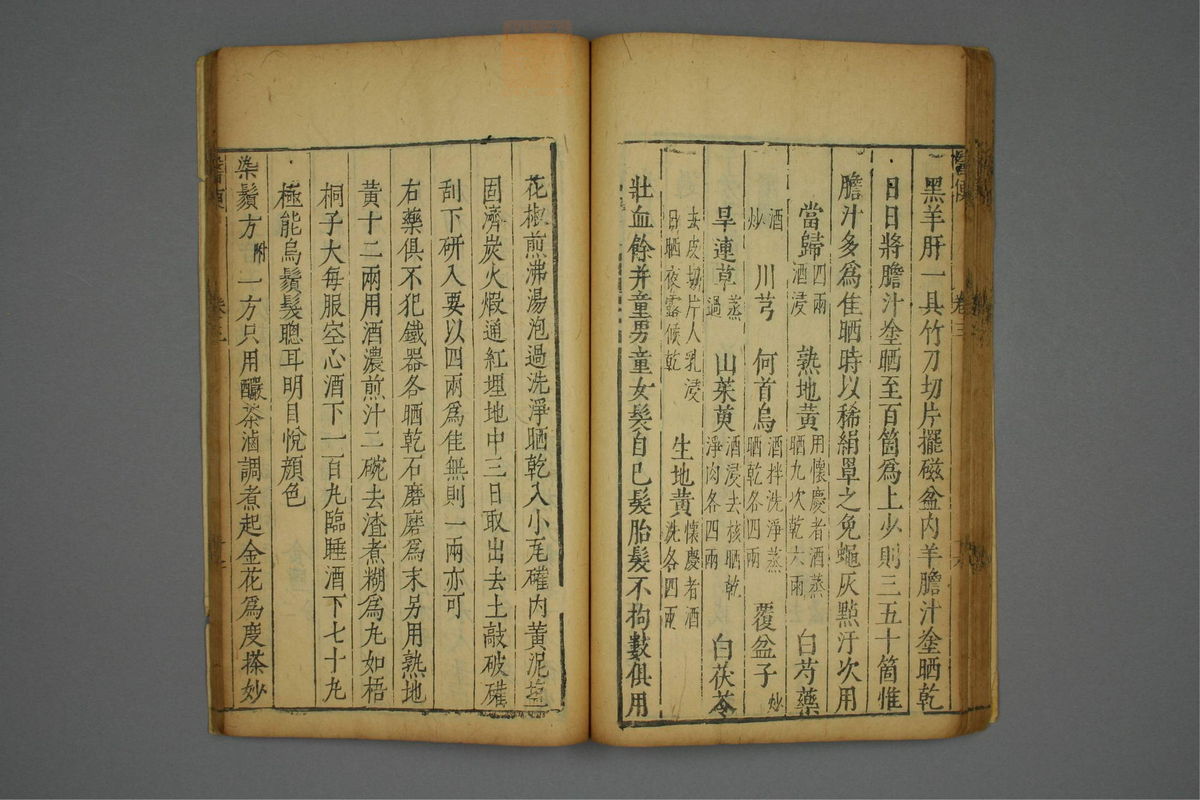 黑羊肝一具竹刀切片擺磁盆內羊膽汁塗晒乾
日日將膽汁塗晒至百箇爲上少則三五十箇惟
膽汁多爲佳晒時以稀絹罩之免蠅灰點汙次用
當歸四兩酒浸 熟地黃用懷慶者酒蒸晒九次乾六兩 白芍藥
酒炒 川芎 何首烏酒拌洗淨蒸晒乾各四兩 覆盆子炒
旱連草蒸過 山茱萸酒浸去核晒乾淨肉各四兩 白茯苓
去皮切片人乳浸日晒夜露候乾 生地黃懷慶者酒洗各四兩
壯血餘并童男童女髮自己髮胎髮不拘數俱用
花椒煎沸湯泡過洗淨晒乾入小瓦礶內黃泥
固濟炭火煅通紅埋地中三日取出去土敲破礶
刮下研入要以四兩爲佳無則一兩亦可
右藥俱不犯鐵器各晒乾石磨磨爲末另用熟地
黃十二兩用酒濃煎汁二碗去渣煮糊爲丸如梧
桐子大每服空心酒下一百丸臨睡酒下七十丸
極能烏鬚髮聰耳明目悅顏色
染鬚方附 一方只用釅茶滷調煮起金花爲度搽妙
醫便
卷三